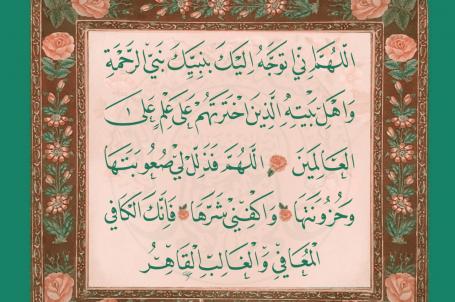 اَللّٰهُمَّ اِنِّي اَتَوَجَّهُ اِلَيْكَ بِنَبِيِّكَ نَبِيِّ الرَّحْمَةِ
وَاَهْلِ بَيْتِهِ الَّذِينَ اخْتَرْتَهُمْ عَلٰى عِلْمٍ عَلَى
الْعَالَمِينَ اَللّٰهُمَّ فَذَلِّلْ لِي صُعُوبَتَهَا
وَحُزُونَتَهَا وَاكْفِنِي شَرَّهَا فَاِنَّكَ الْكَافِي
الْمُعَافِي وَالْغَالِبُ الْقَاهِرُ